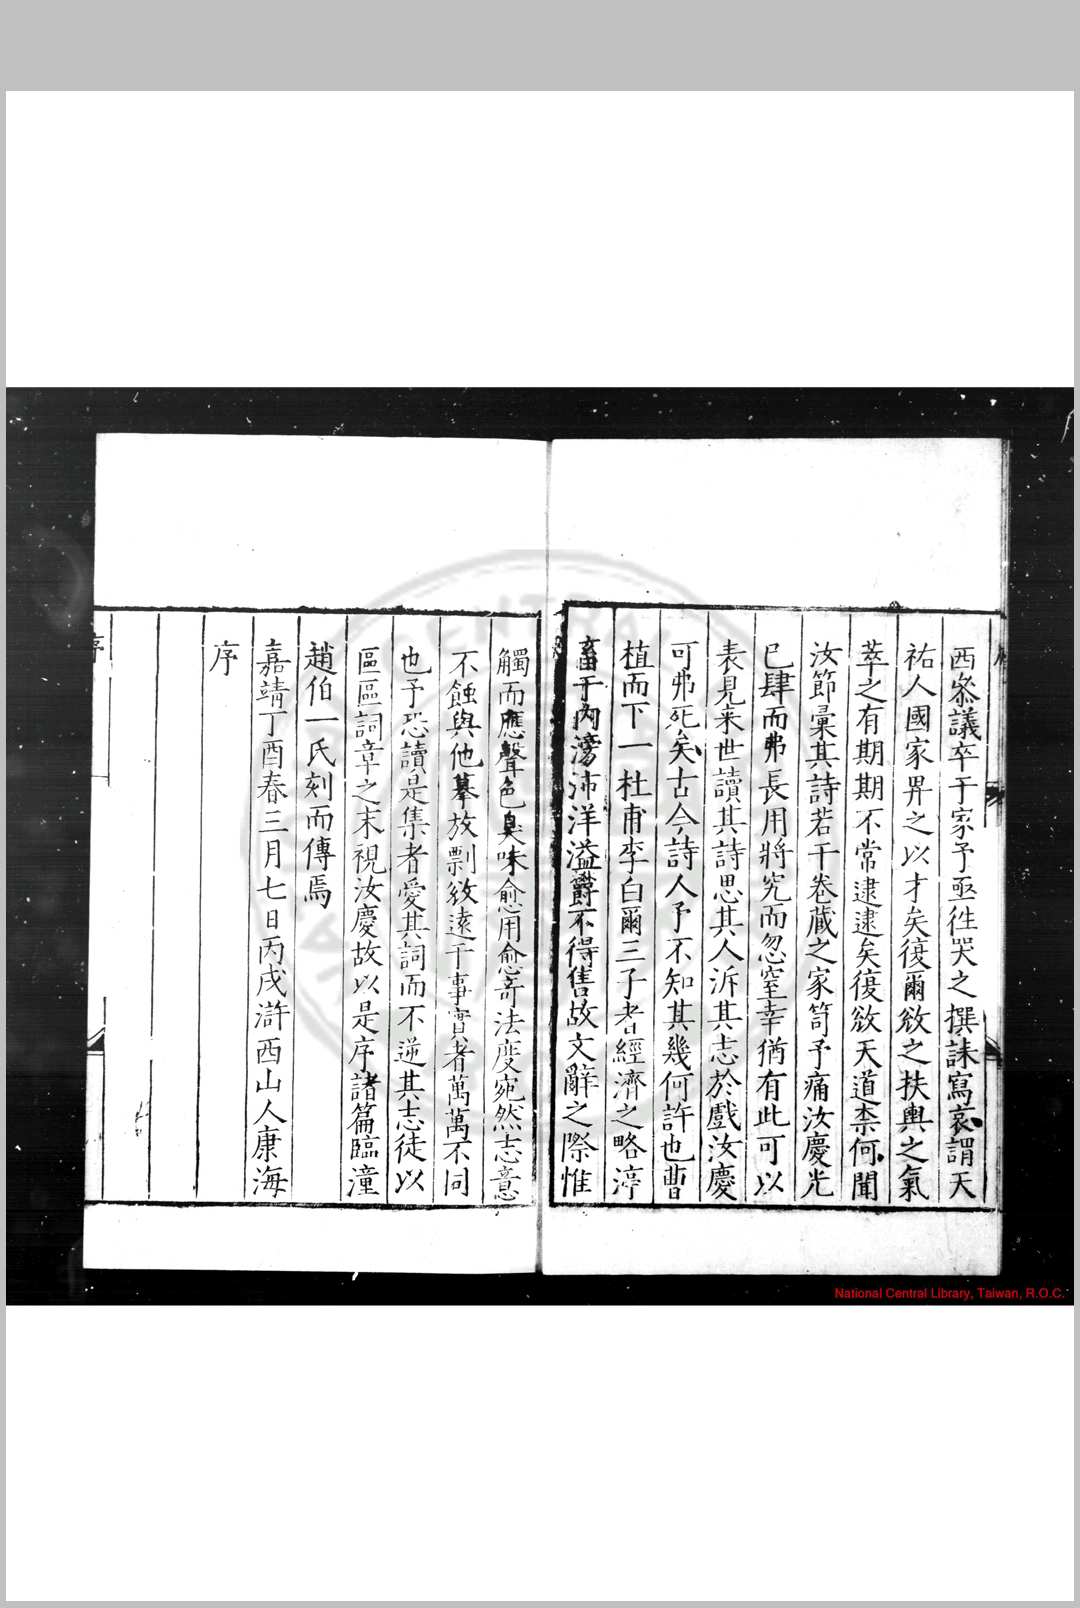 西叅議卒于家予亟徃哭之撰誄寫哀謂天
祐人國家畀之以才矣復爾斂之扶輿之氣
萃之有期期不常逮逮矣復斂天道柰何聞
汝節彙其詩若干卷藏之家笥予痛汝慶光
已肆而弗長用將究而忽窒幸猶有此可以
表見来世讀其詩思其人泝其志於戲汝慶
可弗死矣古今詩人予不知其幾何許也曹
植而下一杜甫李白爾三子者經濟之略渟
畜于内滂沛洋溢欝不得售故文辭之際惟
觸而應聲色臭味愈用愈竒法度宛然志意
不蝕與他摹放剽斂遠于事實者萬萬不同
也予恐讀是集者愛其詞而不逆其志徒以
區區詞章之末視汝慶故以是序諸篇臨潼
趙伯一氏刻而傳焉
嘉靖丁酉春三月七日丙戌滸西山人康海
序
序
National Central Library, Taiwan, R.O.C.